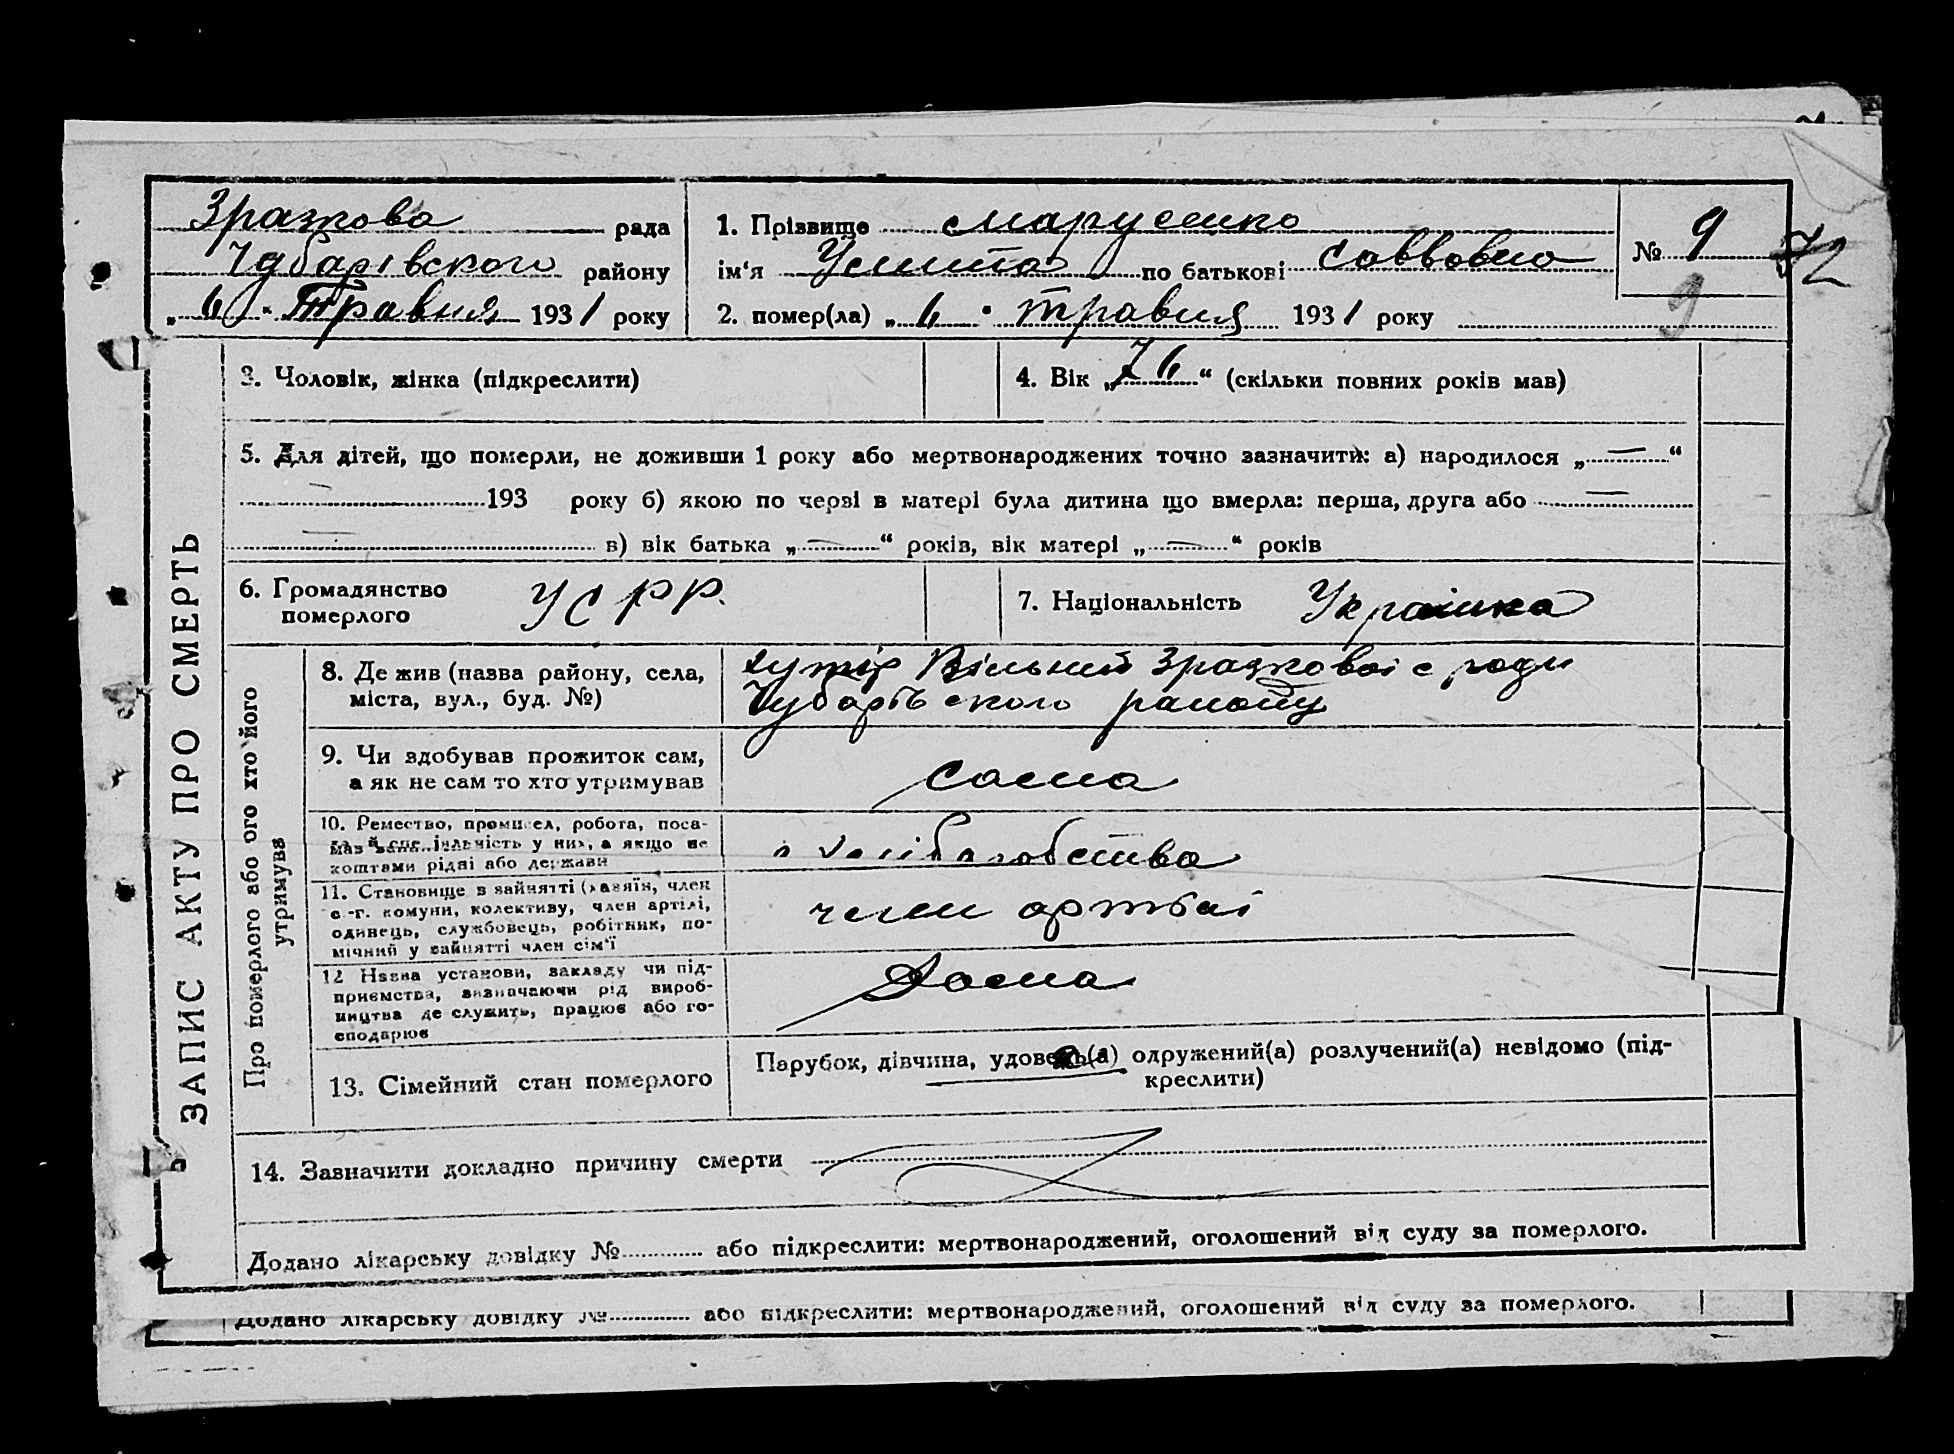 Зразкова рада
Чубарівского району
„ 6 “ Травня 1931 року
1. Прізвище Марусенко
ім‘я по батькові Саввовна
2. помер(ла) „ 6 “ травня 1931 року
№ 9
72
9
ЗАПИС АКТУ ПРО СМЕРТЬ
3. Чоловік, жінка (підкреслити)
4. Вік „ 76 “ (скільки повних років мав)
5. Для дітей, що померли, не доживши 1 року або мертвонароджених точно зазначити: а) народилося „ — “
— 193 року б) якою по черзі в матері була дитина що вмерла: перша, друга або —
— в) вік батька „ — “ років, вік матері „ — “ років
6. Громадянство
померлого
УСРР.
7. Національність Українка
Про померлого або ого хто його
утримува
8. Де жив (назва району, села,
міста, вул., буд. №)
хутір Вільний Зразковоі с ради
Чубарівского району
9. Чи здобував прожиток сам,
а як не сам то хто утримував
сама
10. Ремество, промисел, робота, поса-
мав у них, а якщо не
коштами рідні або держави
11. Становище в зайнятті (хазяїн, член
с-г. комуни, колективу, член артілі,
одинець, службовець, робітник, по-
мічний у зайнятті член сім‘ї
член
12 Назва установи, закладу чи під-
приємства, визначаючи рід вироб-
ництва де служить, працює або го-
сподарює
13. Сімейний стан померлого
Парубок, дівчина, удовець(а) одружений(а) розлучений(а) невідомо (під-
креслити)
14. Зазначити докладно причину смерти
Додано лікарську довідку № або підкреслити: мертвонароджений, оголошений від суду за померлого.
Додано лікарську довідку № або підкреслити: мертвонароджений, оголошений від суду за померлого.